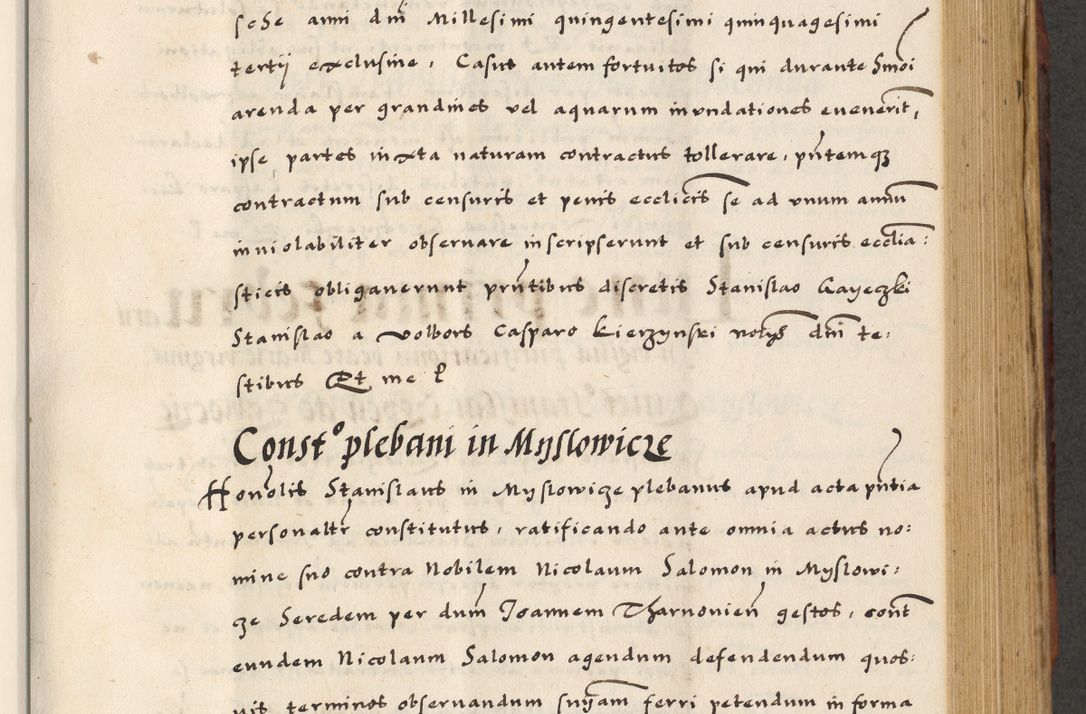 sche anni dni Millesimi quingentesimi quinquagesimi
tertij exclusive, Casus autem fortuitos si qui durante hmoi
arenda per grandines vel aquarum inundationes evenerit,
ipse partes iuxta naturam contractus tollerare, pntemq
contractum sub censuris et penis ecclicis se ad unum annu
inviolabiliter observare inscripserunt et sub censuris ecclia:
sticis obligaverunt pntibus discretis Stanislao Gayeczki
Stanislao a Volbors Casparo Kierzynski notys dni te:
stibus Et me P
Const⁰ plebani in Myslowicze
Honolis Stanislaus in Myslowicze plebanus apud acta pntia
personaltr constitutus, ratificando ante omnia actus no:
mine suo contra Nobilem Nicolaum Salomon in Myslowi:
cze heredem per dum Joannem Tharnovien gestos, cont
eundem Nicolaum Salomon agendum defendendum quos:
vis terminos observandum snyam ferri petendum in forma